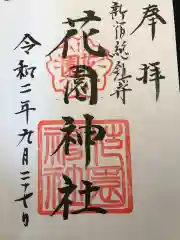 奉拝
新宿総鎮守
花園神社
令和二年九月二十七日